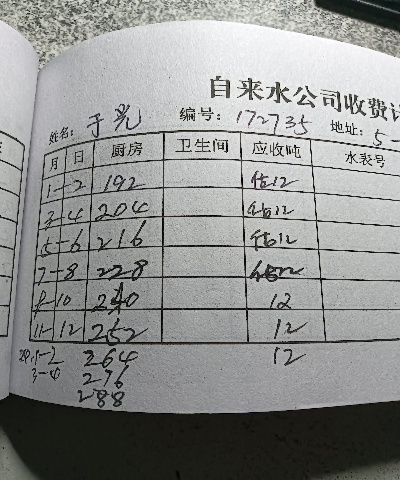 自来水公司收费
姓名: 于光 编号: 172735 地址: 5-
月 日 厨房 卫生间 应收吨 水表号
1-2 192 估12
3-4 204 估12
5-6 216 估12
7-8 228 估12
9-10 240 12
11-12 252 12
1-2 264 12
3-4 276
288